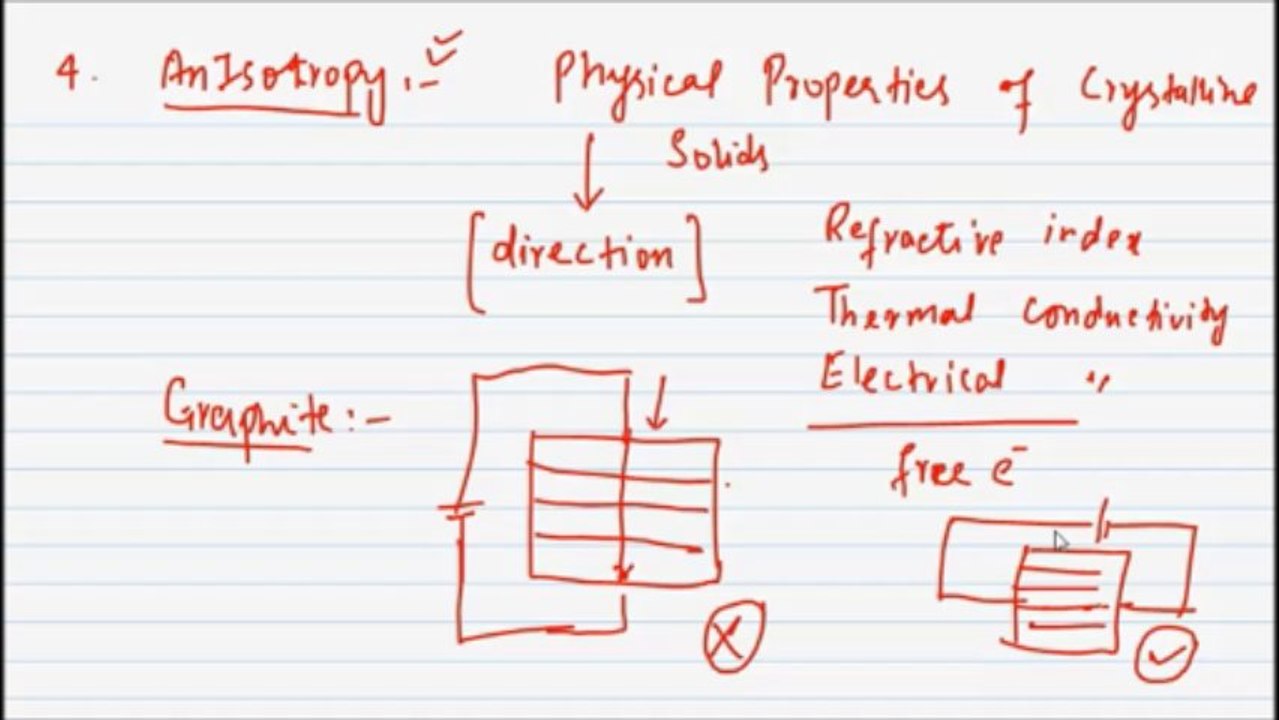 4. AnIsotropy :- Physical Properties of Crystalline
Solids
[direction]
Refractive index
Thermal conductivity
Electrical "
free e⁻
Graphite :-